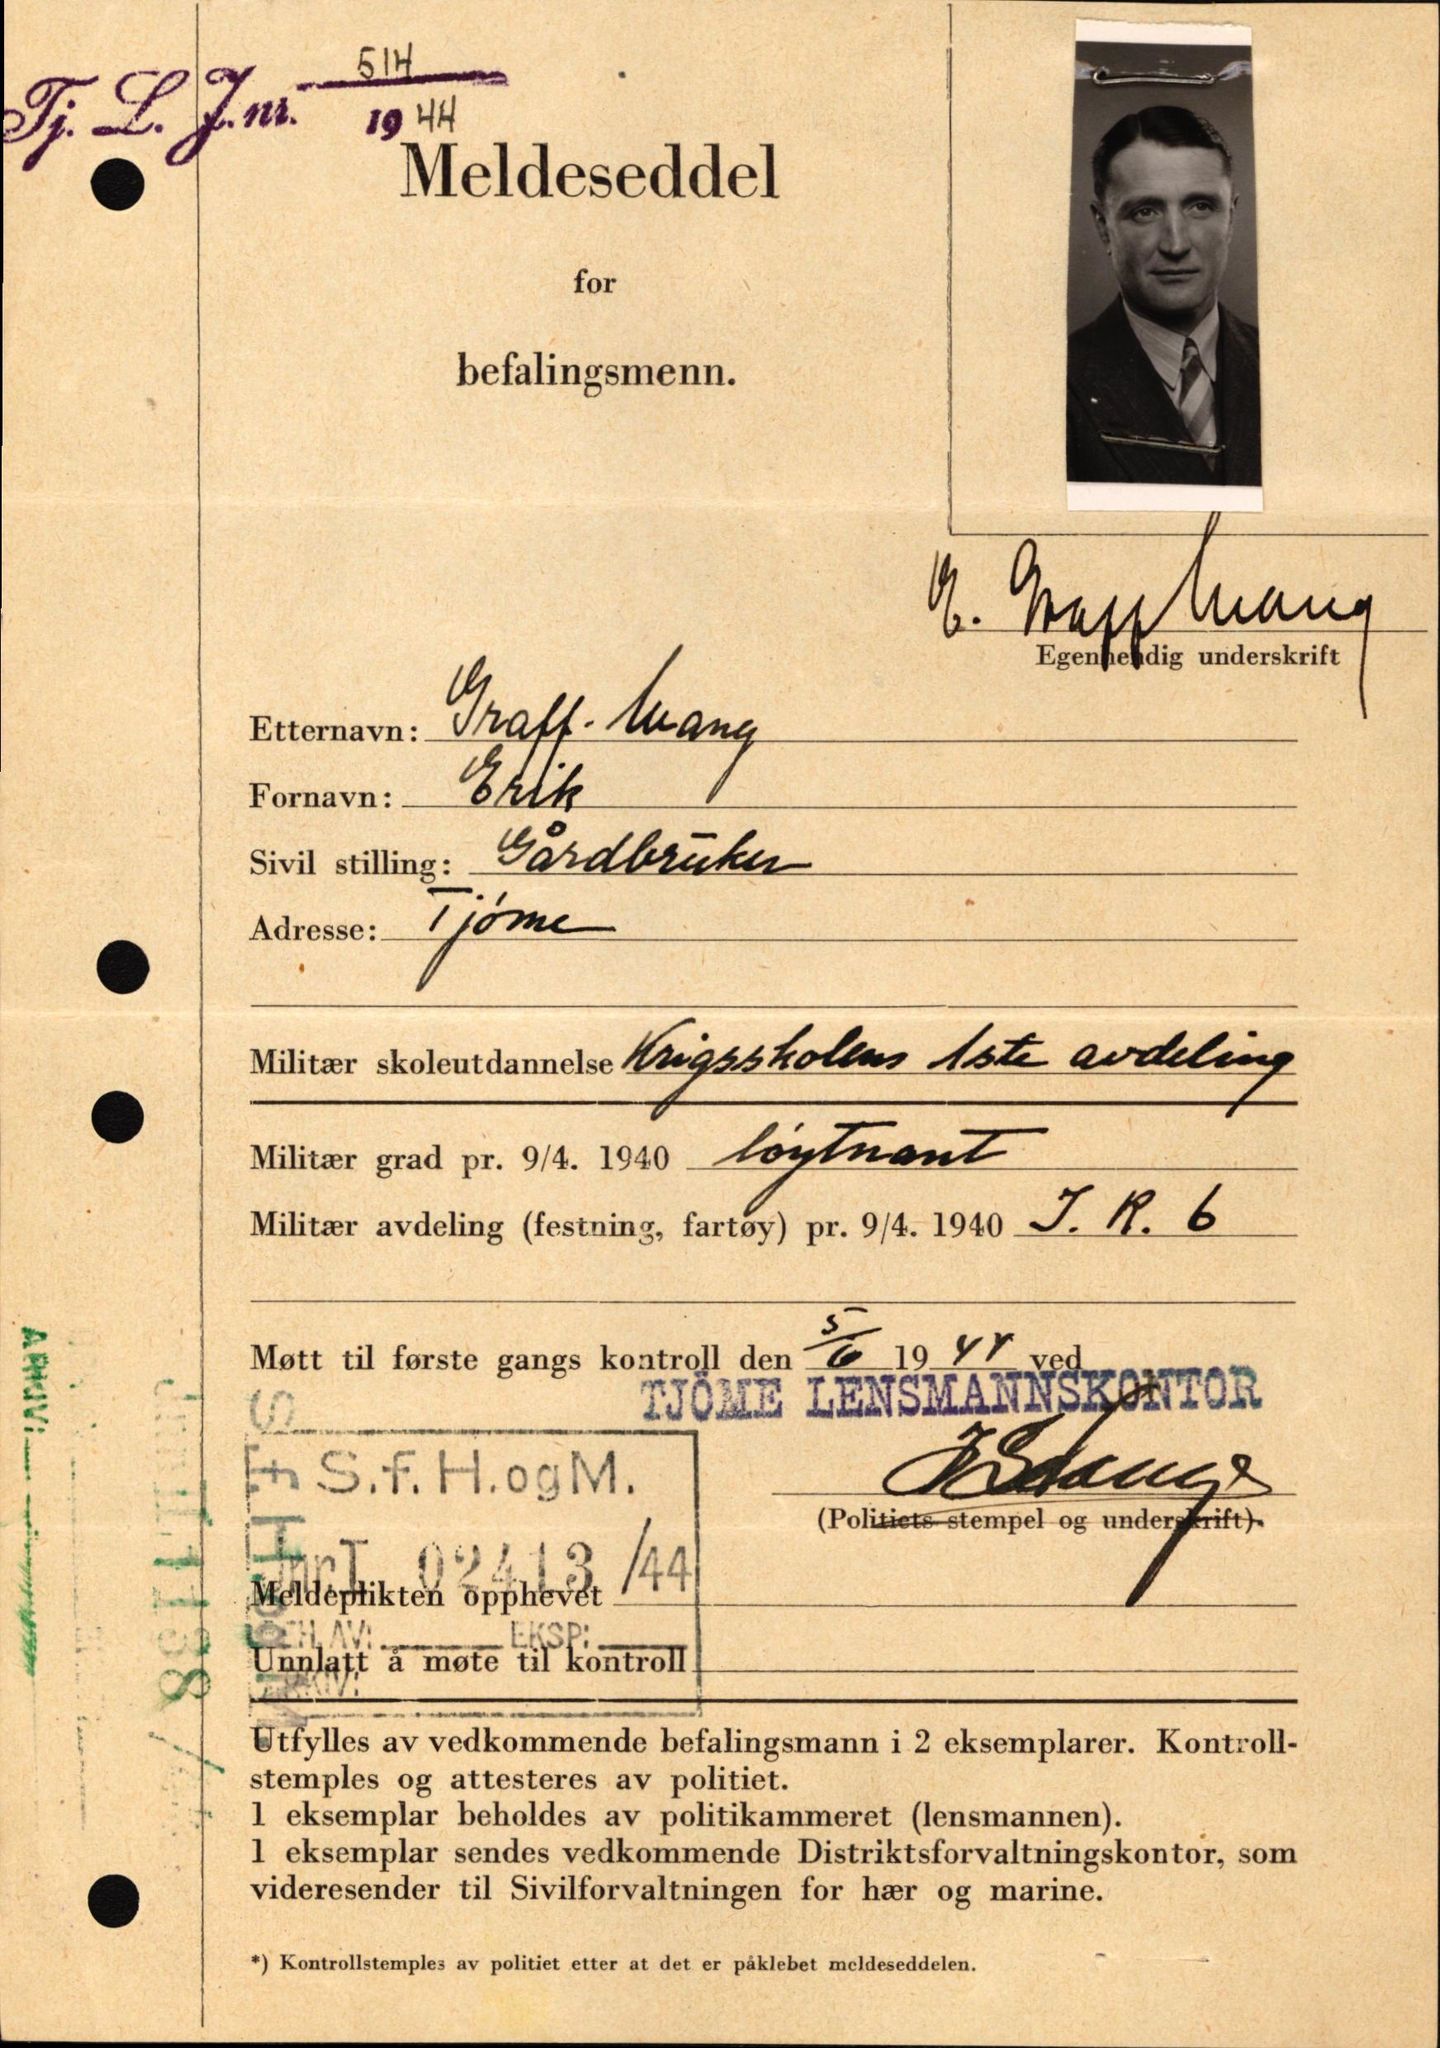 Tj. L. J.nr. 514
1944
Meldeseddel
for
befalingsmenn.
E. Graff Wang
Egenhendig underskrift
Etternavn: Graff-Wang
Fornavn: Erik
Sivil stilling: Gårdbruker
Adresse: Tjöme
Militær skoleutdannelse Krigsskolens 1ste avdeling
Militær grad pr. 9/4. 1940 løytnant
Militær avdeling (festning, fartøy) pr. 9/4. 1940 I. R. 6
Møtt til første gangs kontroll den 5/6 1944 ved
TJÖME LENSMANNSKONTOR
(Politiets stempel og underskrift).
S.f.H.ogM.
Jnr.I 02413/44
Meldeplikten opphevet
BEH. AV: EKSP:
Unnlatt å møte til kontroll
ARKIV:
Utfylles av vedkommende befalingsmann i 2 eksemplarer. Kontroll-
stemples og attesteres av politiet.
1 eksemplar beholdes av politikammeret (lensmannen).
1 eksemplar sendes vedkommende Distriktsforvaltningskontor, som
videresender til Sivilforvaltningen for hær og marine.
*) Kontrollstemples av politiet etter at det er påklebet meldeseddelen.
ARKIV: